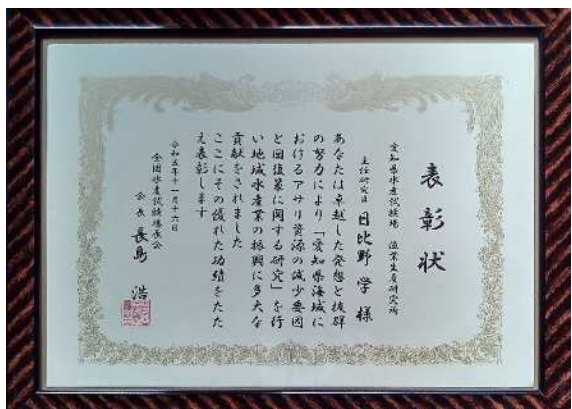 表彰状
愛知県水産試験場　漁業生産研究所
主任研究員　日比野　学　様
あなたは卓越した発想と抜群
の努力により「愛知県海域に
おけるアサリ資源の減少要因
と回復策に関する研究」を行
い地域水産業の振興に多大な
貢献をされました
ここにその優れた功績をたた
え表彰します
令和五年十一月十六日
全国水産試験場長会
会長　長島　浩